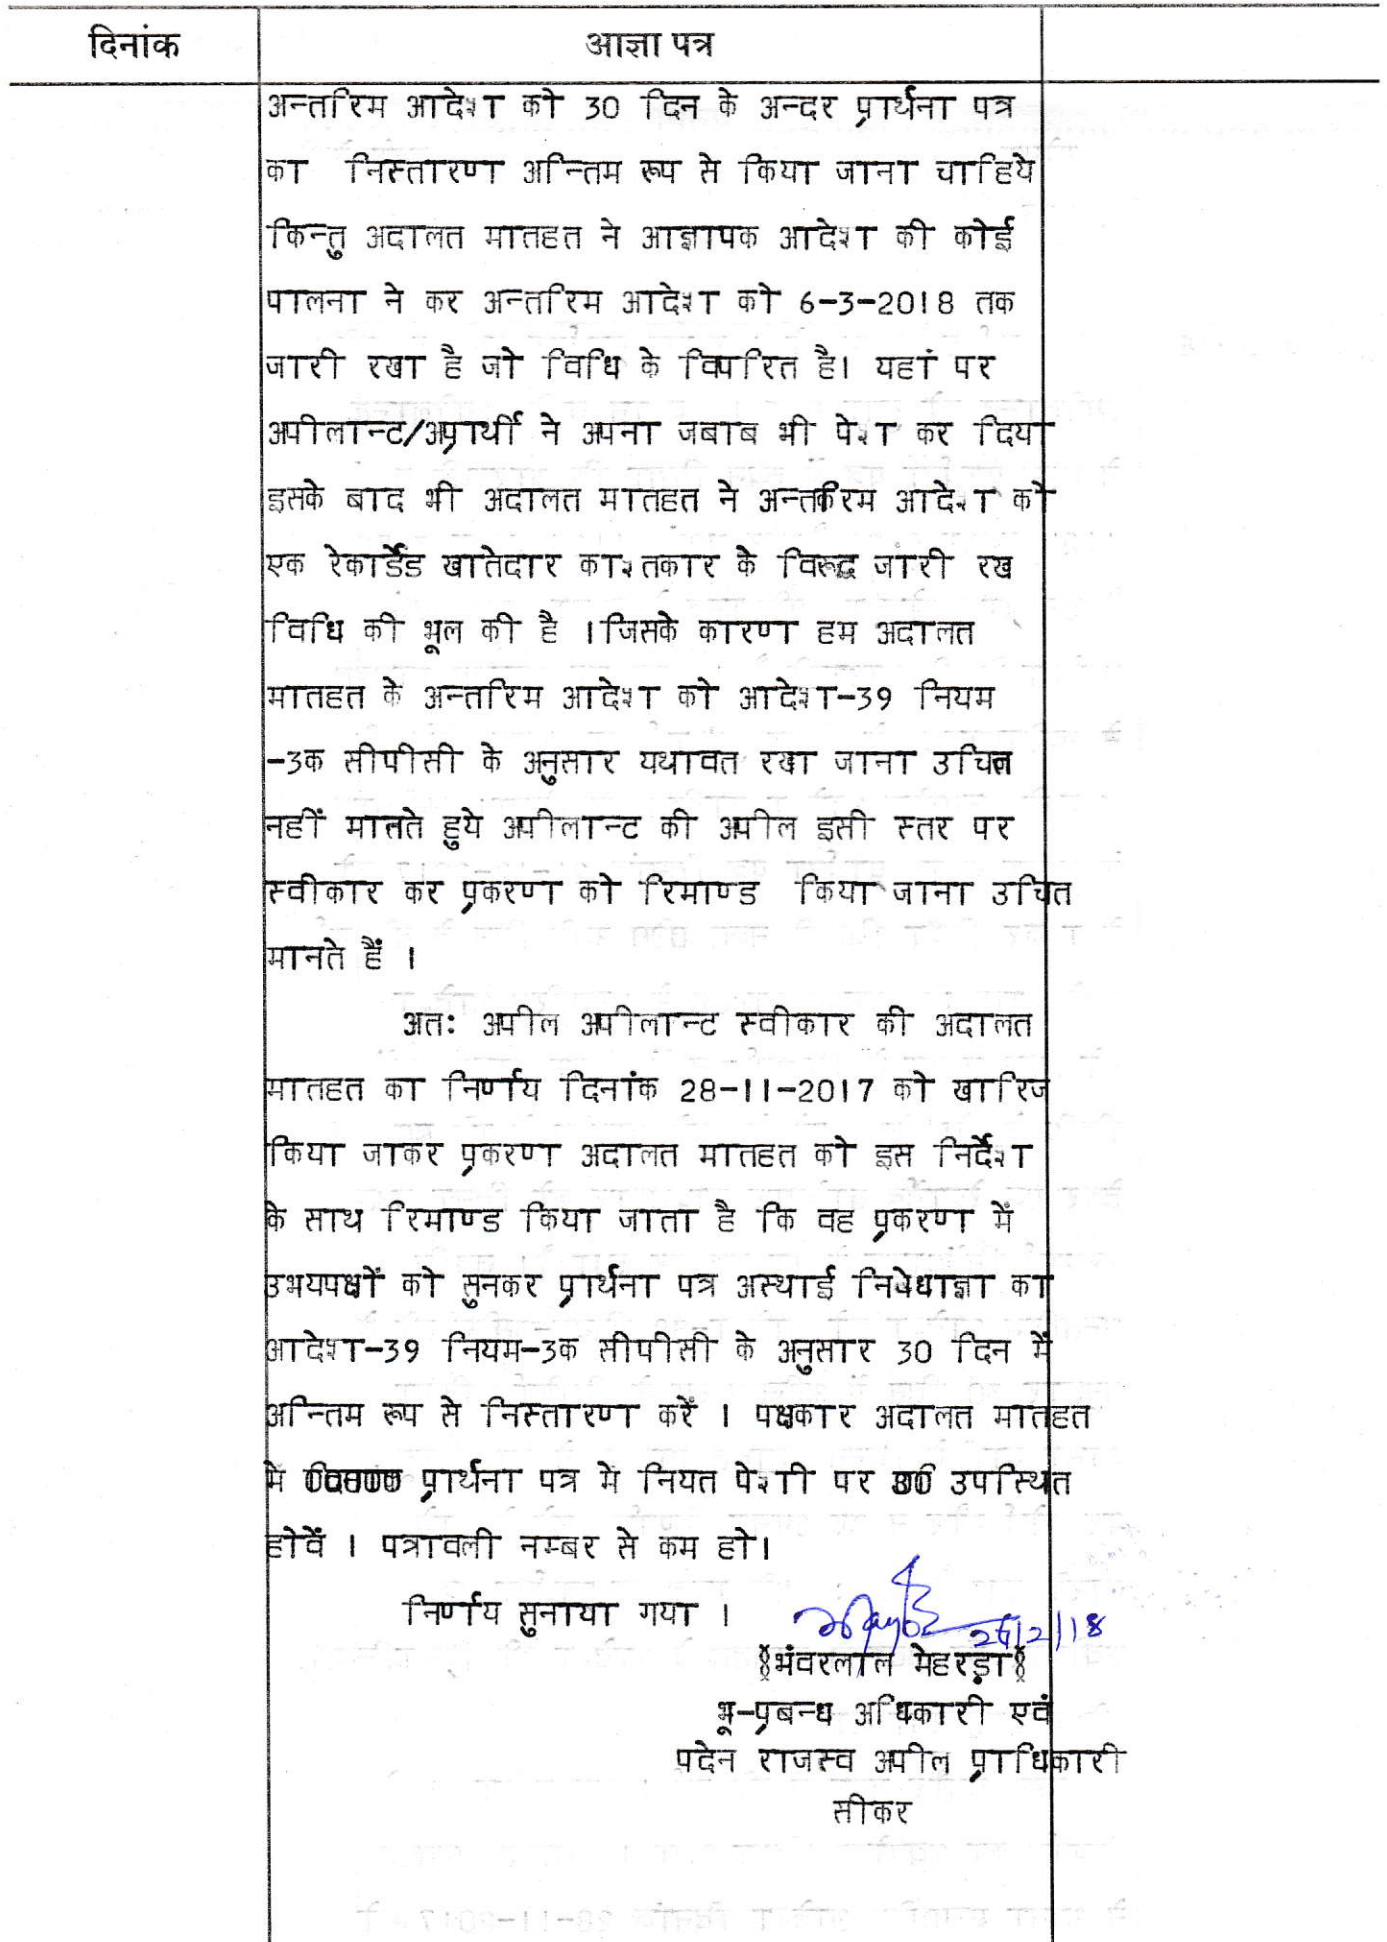 दिनांक आज्ञा पत्र
अन्तरिम आदेश को 30 दिन के अन्दर प्रार्थना पत्र
का निस्तारण अन्तिम रूप से किया जाना चाहिये
किन्तु अदालत मातहत ने आज्ञापक आदेश की कोई
पालना ने कर अन्तरिम आदेश को 6-3-2018 तक
जारी रखा है जो विधि के विपरित है। यहां पर
अपीलान्ट/अप्रार्थी ने अपना जबाब भी पेश कर दिया
इसके बाद भी अदालत मातहत ने अन्तरिम आदेश को
एक रेकार्डेड खातेदार काश्तकार के विरूद्ध जारी रख
विधि की भूल की है ।जिसके कारण हम अदालत
मातहत के अन्तरिम आदेश को आदेश-39 नियम
-3क सीपीसी के अनुसार यथावत रखा जाना उचित
नहीं मानते हुये अपीलान्ट की अपील इसी स्तर पर
स्वीकार कर प्रकरण को रिमाण्ड किया जाना उचित
मानते हैं ।
अतः अपील अपीलान्ट स्वीकार की अदालत
मातहत का निर्णय दिनांक 28-11-2017 को खारिज
किया जाकर प्रकरण अदालत मातहत को इस निर्देश
के साथ रिमाण्ड किया जाता है कि वह प्रकरण में
उभयपक्षों को सुनकर प्रार्थना पत्र अस्थाई निषेधाज्ञा का
आदेश-39 नियम-3क सीपीसी के अनुसार 30 दिन में
अन्तिम रूप से निस्तारण करें । पक्षकार अदालत मातहत
में प्रार्थना पत्र में नियत पेशी पर उपस्थित
होवें । पत्रावली नम्बर से कम हो।
निर्णय सुनाया गया ।
26/2/18
§भंवरलाल मेहरड़ा§
भू-प्रबन्ध अधिकारी एवं
पदेन राजस्व अपील प्राधिकारी
सीकर